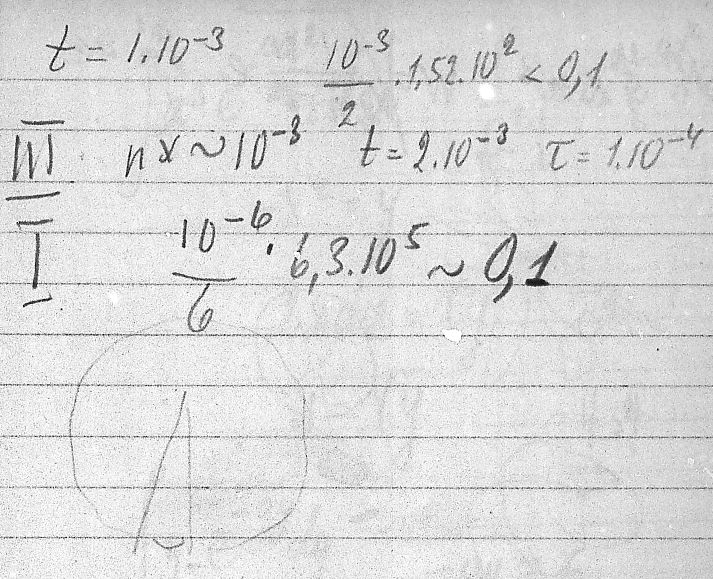 t = 1.10⁻³ 10⁻³/2 . 1,52.10² < 0,1
III nx ~ 10⁻³ t = 2.10⁻³ τ = 1.10⁻⁴
I 10⁻⁶/6 . 6,3.10⁵ ~ 0,1